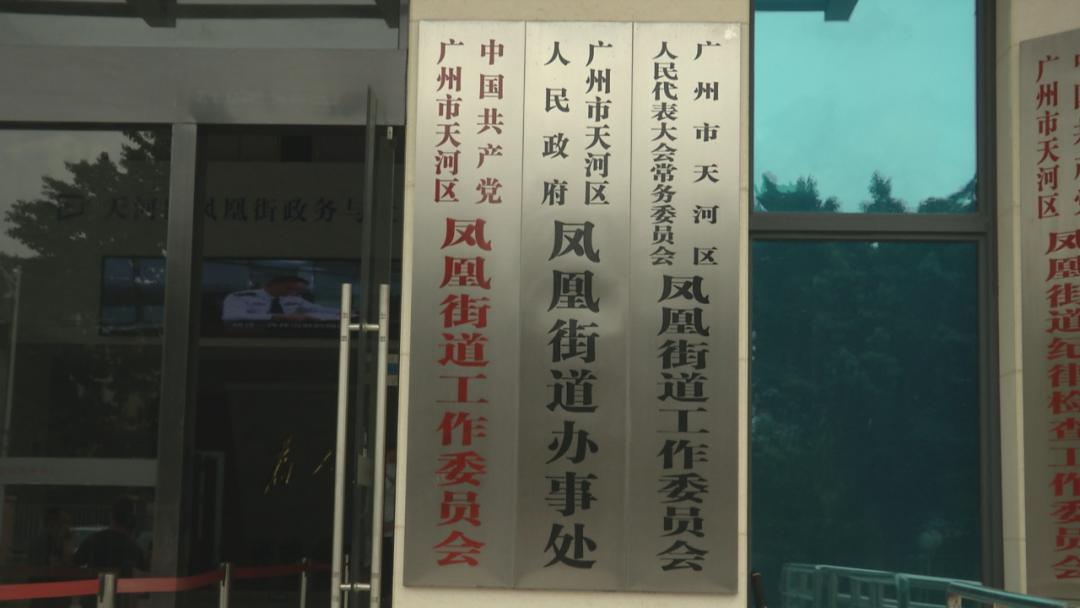 中国共产党
广州市天河区
凤凰街道工作委员会
广州市天河区
人民政府
凤凰街道办事处
广州市天河区
人民代表大会常务委员会
凤凰街道工作委员会
广州市天河区
凤凰街道纪律检查工作委员会
天河
凤凰街政务与